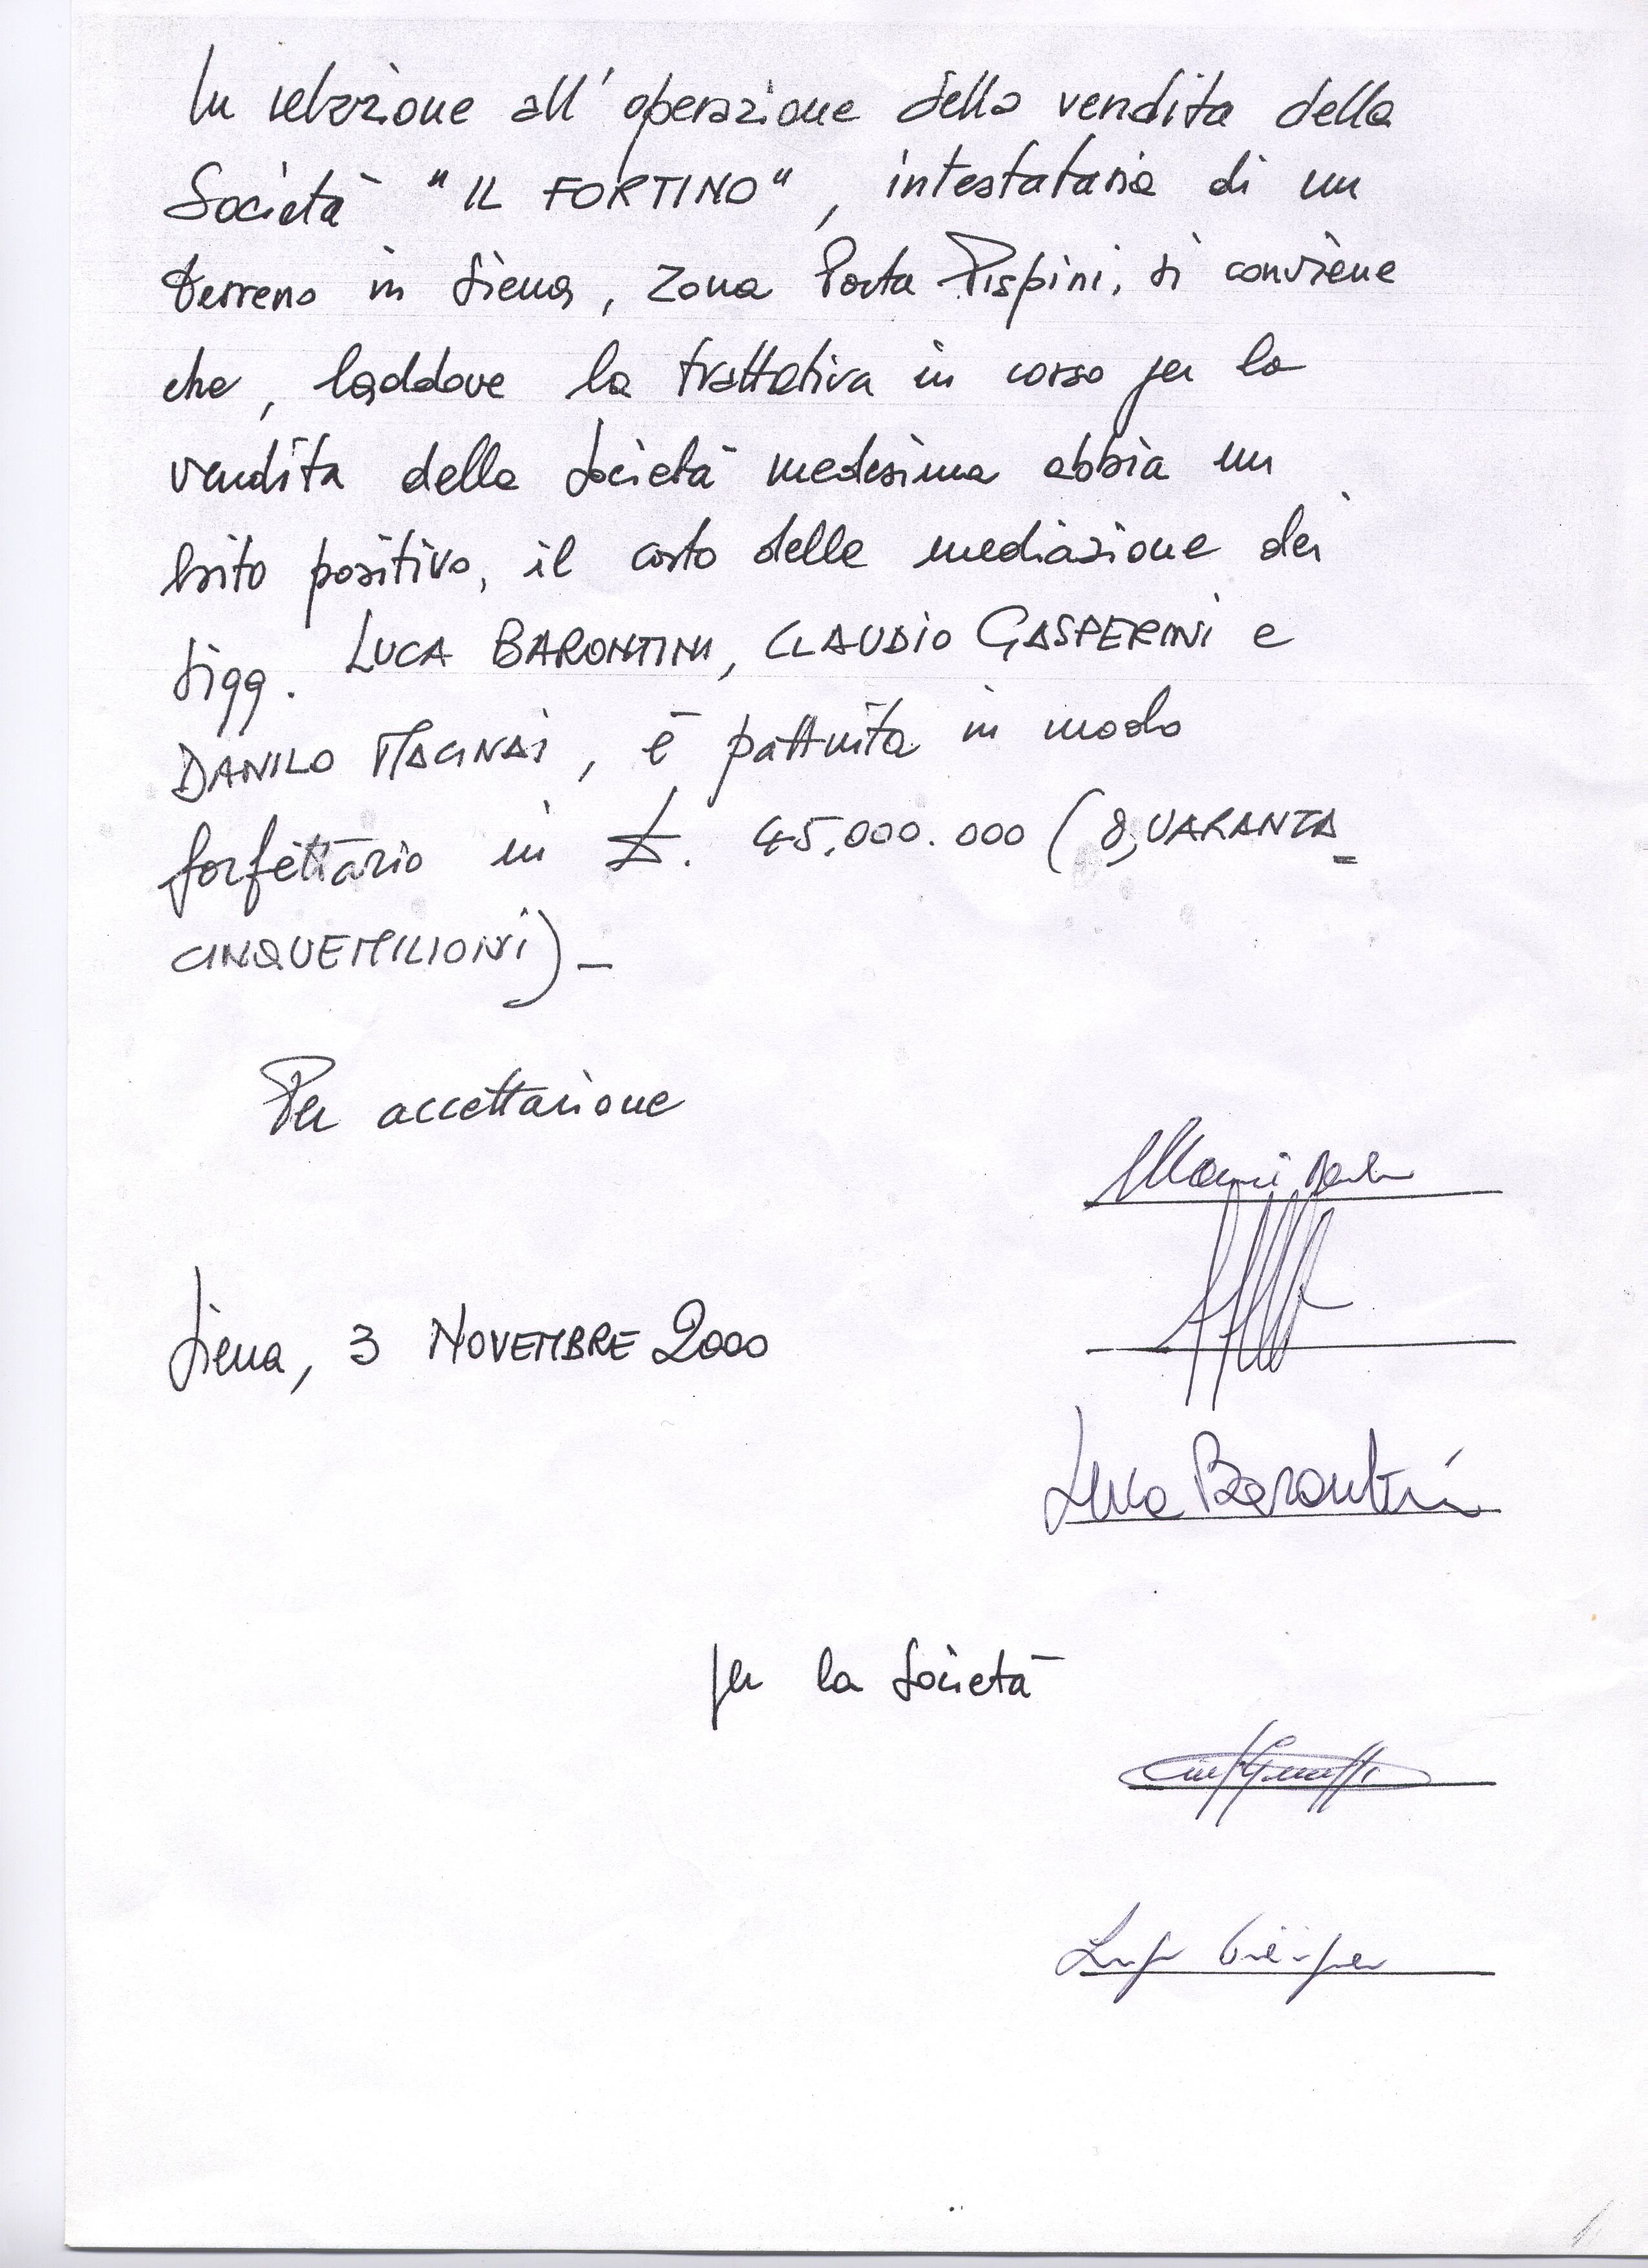 In relazione all'operazione della vendita della
Società "IL FORTINO", intestataria di un
terreno in Siena, zona Porta Pispini, si conviene
che, laddove la trattativa in corso per la
vendita della Società medesima abbia un
esito positivo, il costo della mediazione dei
Sigg. LUCA BARONTINI, CLAUDIO GASPERINI e
DANILO MACINAI, è pattuita in modo
forfettario in £. 45.000.000 (QUARANTA
CINQUEMILIONI)_
Per accettazione
Siena, 3 NOVEMBRE 2000
Luca Barontini
per la Società